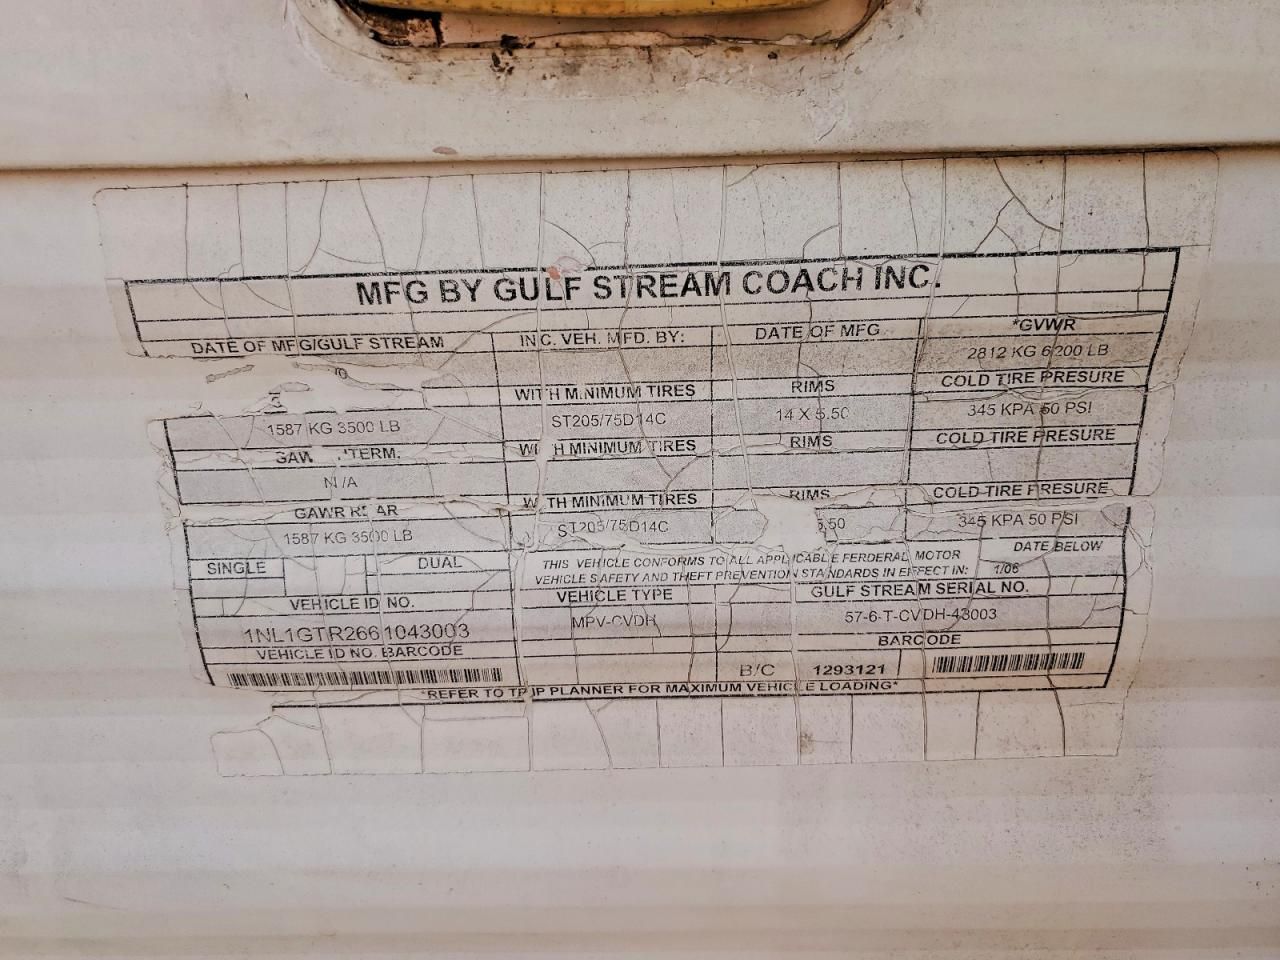 MFG BY GULF STREAM COACH INC.
DATE OF MFG/GULF STREAM INC. VEH. MFD. BY: DATE OF MFG *GVWR
2812 KG 6200 LB
WITH MINIMUM TIRES RIMS COLD TIRE PRESURE
1587 KG 3500 LB ST205/75D14C 14 X 5.50 345 KPA 50 PSI
GAW TERM. WITH MINIMUM TIRES RIMS COLD TIRE PRESURE
N/A
GAWR REAR WITH MINIMUM TIRES RIMS COLD TIRE PRESURE
1587 KG 3500 LB ST205/75D14C 5.50 345 KPA 50 PSI
SINGLE DUAL THIS VEHICLE CONFORMS TO ALL APPLICABLE FERDERAL MOTOR DATE BELOW
VEHICLE SAFETY AND THEFT PREVENTION STANDARDS IN EFFECT IN: 1/06
VEHICLE ID NO. VEHICLE TYPE GULF STREAM SERIAL NO.
1NL1GTR2661043003 MPV-CVDH 57-6-T-CVDH-43003
VEHICLE ID NO. BARCODE BARCODE
B/C 1293121
*REFER TO TRIP PLANNER FOR MAXIMUM VEHICLE LOADING*